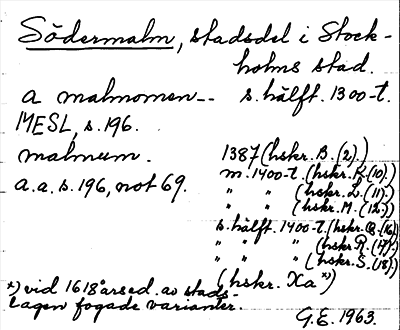 Södermalm, stadsdel i Stock-
holms stad.
a malmomen-- s. hälft. 1300-t.
MESL, s. 196.
malmum. 1387 (hskr. B. (2).)
a.a. s. 196, not 69. m. 1400-t. (hskr. K. (10).)
" " (hskr. L. (11).)
" " (hskr. M. (12).)
s. hälft. 1400-t. (hskr. Q. (16))
" " " (hskr. R. (17).)
" " " (hskr. S. (18))
(hskr. Xa x))
x) vid 1618 årsed. av stads-
lagen fogade varianter.
G.E. 1963.